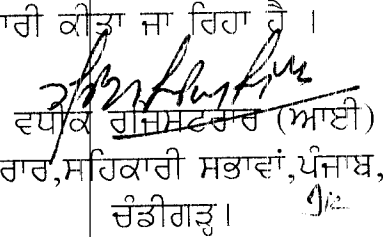 ਾਰੀ ਕੀਤਾ ਜਾ ਰਿਹਾ ਹੈ ।
ਵਧੀਕ ਰਜਿਸਟਰਾਰ (ਆਈ)
ਰਾਰ,ਸਹਿਕਾਰੀ ਸਭਾਵਾਂ,ਪੰਜਾਬ,
ਚੰਡੀਗੜ੍ਹ।